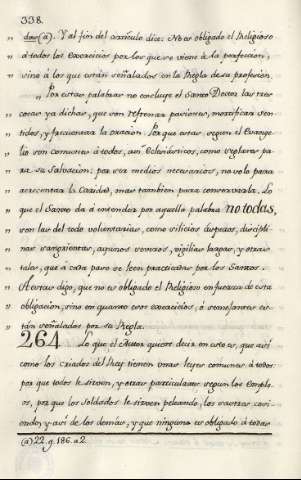 338.
„ dar (a). Y al fin del articulo dice: No es obligado el Religioso
„ á todos los exercicios por los que se viene á la perfeccion;
„ sino á los que estàn señalados en la Regla de su profesion.
„ Por estas palabras no concluye el Santo Doctor las tres
„ cosas ya dichas, que son refrenar pasiones, mortificar sen
„ tidos, y frecuentar la oracion. Por que estas segun el Evange
„ lio son comunes á todos, aun Eclesiàsticos, como seglares pa
„ ra su salvacion: por ser medios necesarios, no solo para
„ acrecentar la Caridad, mas tambien para conservarla. Lo
„ que el Santo da á entender por aquella palabra no todas,
„ son las del todo voluntarias, como silicios asperos, discipli
„ nas sangrientas, ayunos severos, vigilias largas, y otras
„ tales, que á cada paso se leen practicadas por los Santos.
„ A estas digo, que no es obligado el Religioso en fuerza de esta
„ obligacion, sino en quanto esos exercicios, ó semejantes es-
„ tàn señalados por su Regla.
264 Lo que el Autor quiere decir en esto es, que asi
como los criados del Rey tienen unas leyes comunes á todos
por que todos le sirven, y otras particulares segun los Emple
os, por que los Soldados le sirven peleando, los sastres cosi
endo, y asi de los demás, y que ninguno es obligado á todas
(a) 22. q. 186. a 2.